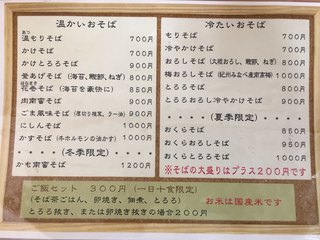 温かいおそば
温もりそば 700円
かけそば 700円
かけとろろそば 900円
釜あげそば (海苔、鰹節、ねぎ) 800円
花巻そば (海苔を豪快に) 850円
肉南蛮そば 900円
ごま風味そば (厚切り椎茸、ラー油) 900円
にしんそば 1000円
かすそば (牛ホルモンの油かす) 1000円
(冬季限定)
かも南蛮そば 1200円
冷たいおそば
もりそば 700円
冷やかけそば 700円
おろしそば (大根おろし、鰹節、ねぎ) 800円
梅おろしそば (紀州みなべ産南高梅) 1000円
とろろそば 900円
とろろおろし冷やかけそば 900円
(夏季限定)
おくらそば 850円
おくらおろしそば 950円
おくらとろろそば 1000円
※そばの大盛りはプラス200円です
ご飯セット 300円 (一日十食限定)
(そば茶ごはん、卵焼き、佃煮、とろろ)
とろろ抜き、または卵焼き抜きの場合200円
お米は国産米です